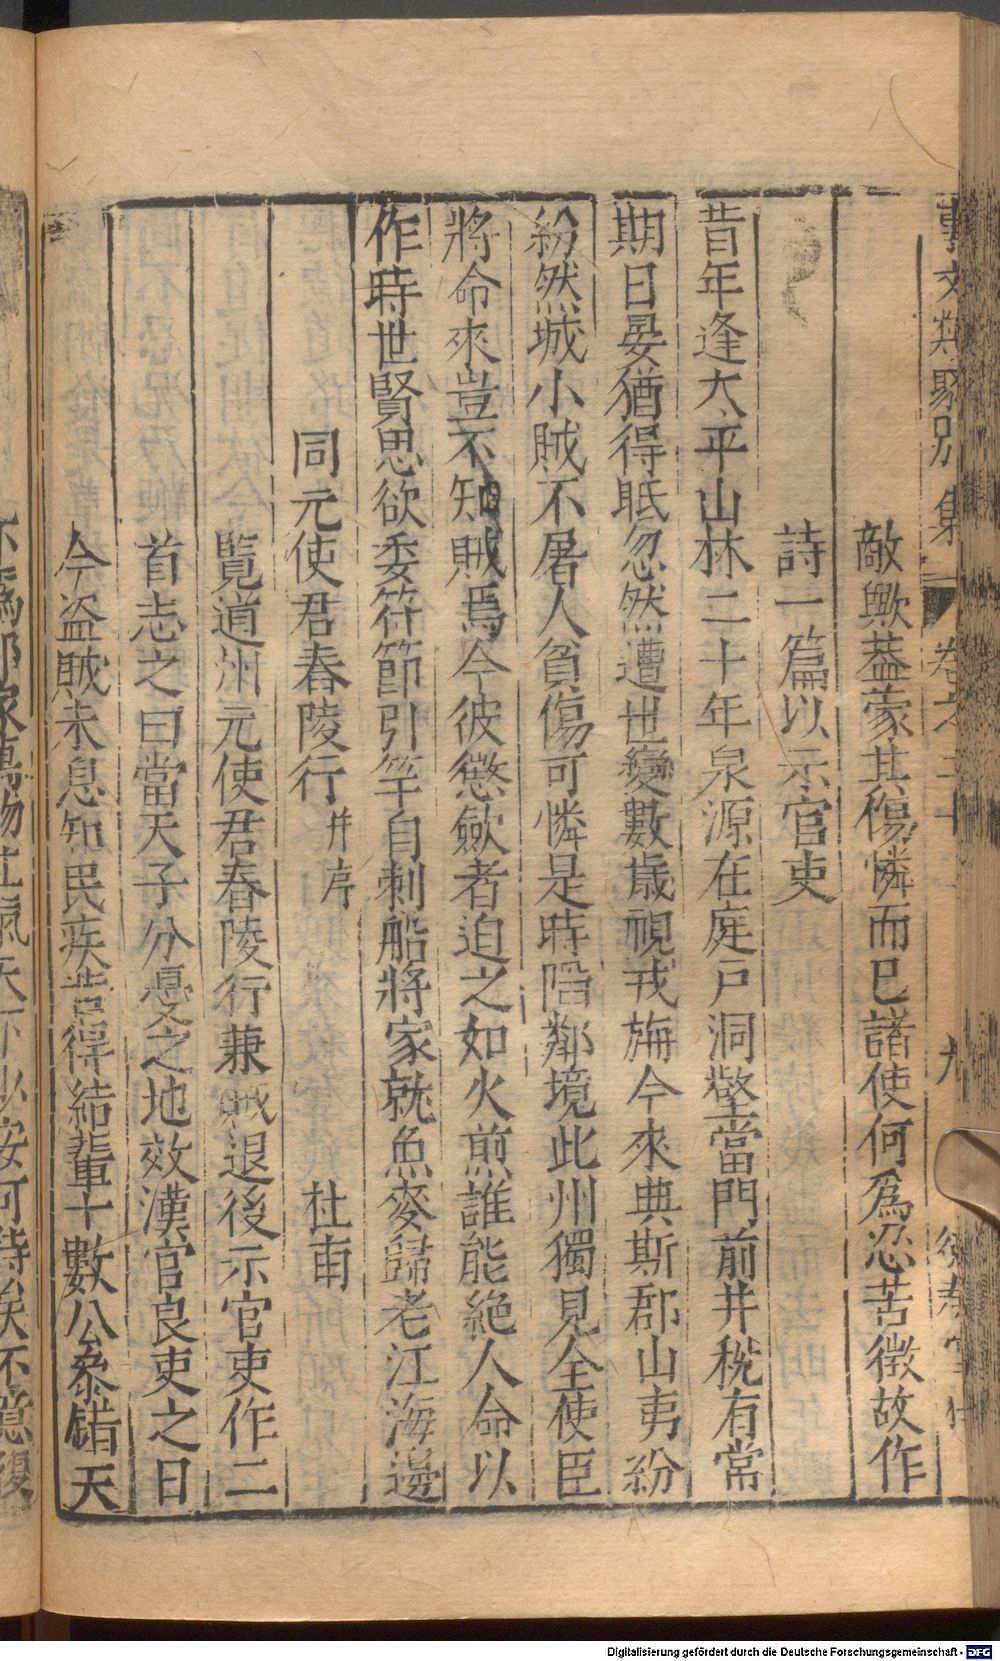 事文類聚別集 卷之二十 九
敵歟葢蒙其傷憐而已諸使何爲忍苦徵故作
詩一篇以示官吏
昔年逢太平山林二十年泉源在庭戶洞壑當門前井稅有常
期日晏猶得眠忽然遭世變數歲視戎旃今來典斯郡山夷紛
紛然城小賊不屠人貧傷可憐是時陷鄰境此州獨見全使臣
將命來豈不知賊焉今彼懲歛者迫之如火煎誰能絶人命以
作時世賢思欲委符節引竿自刺船將家就魚麥歸老江海邊
同元使君舂陵行 幷序 杜甫
覽道州元使君舂陵行兼賊退後示官吏作二
首志之曰當天子分憂之地效漢官良吏之日
今盜賊未息知民疾苦得結輩十數公叅錯天
Digitalisierung gefördert durch die Deutsche Forschungsgemeinschaft - DFG